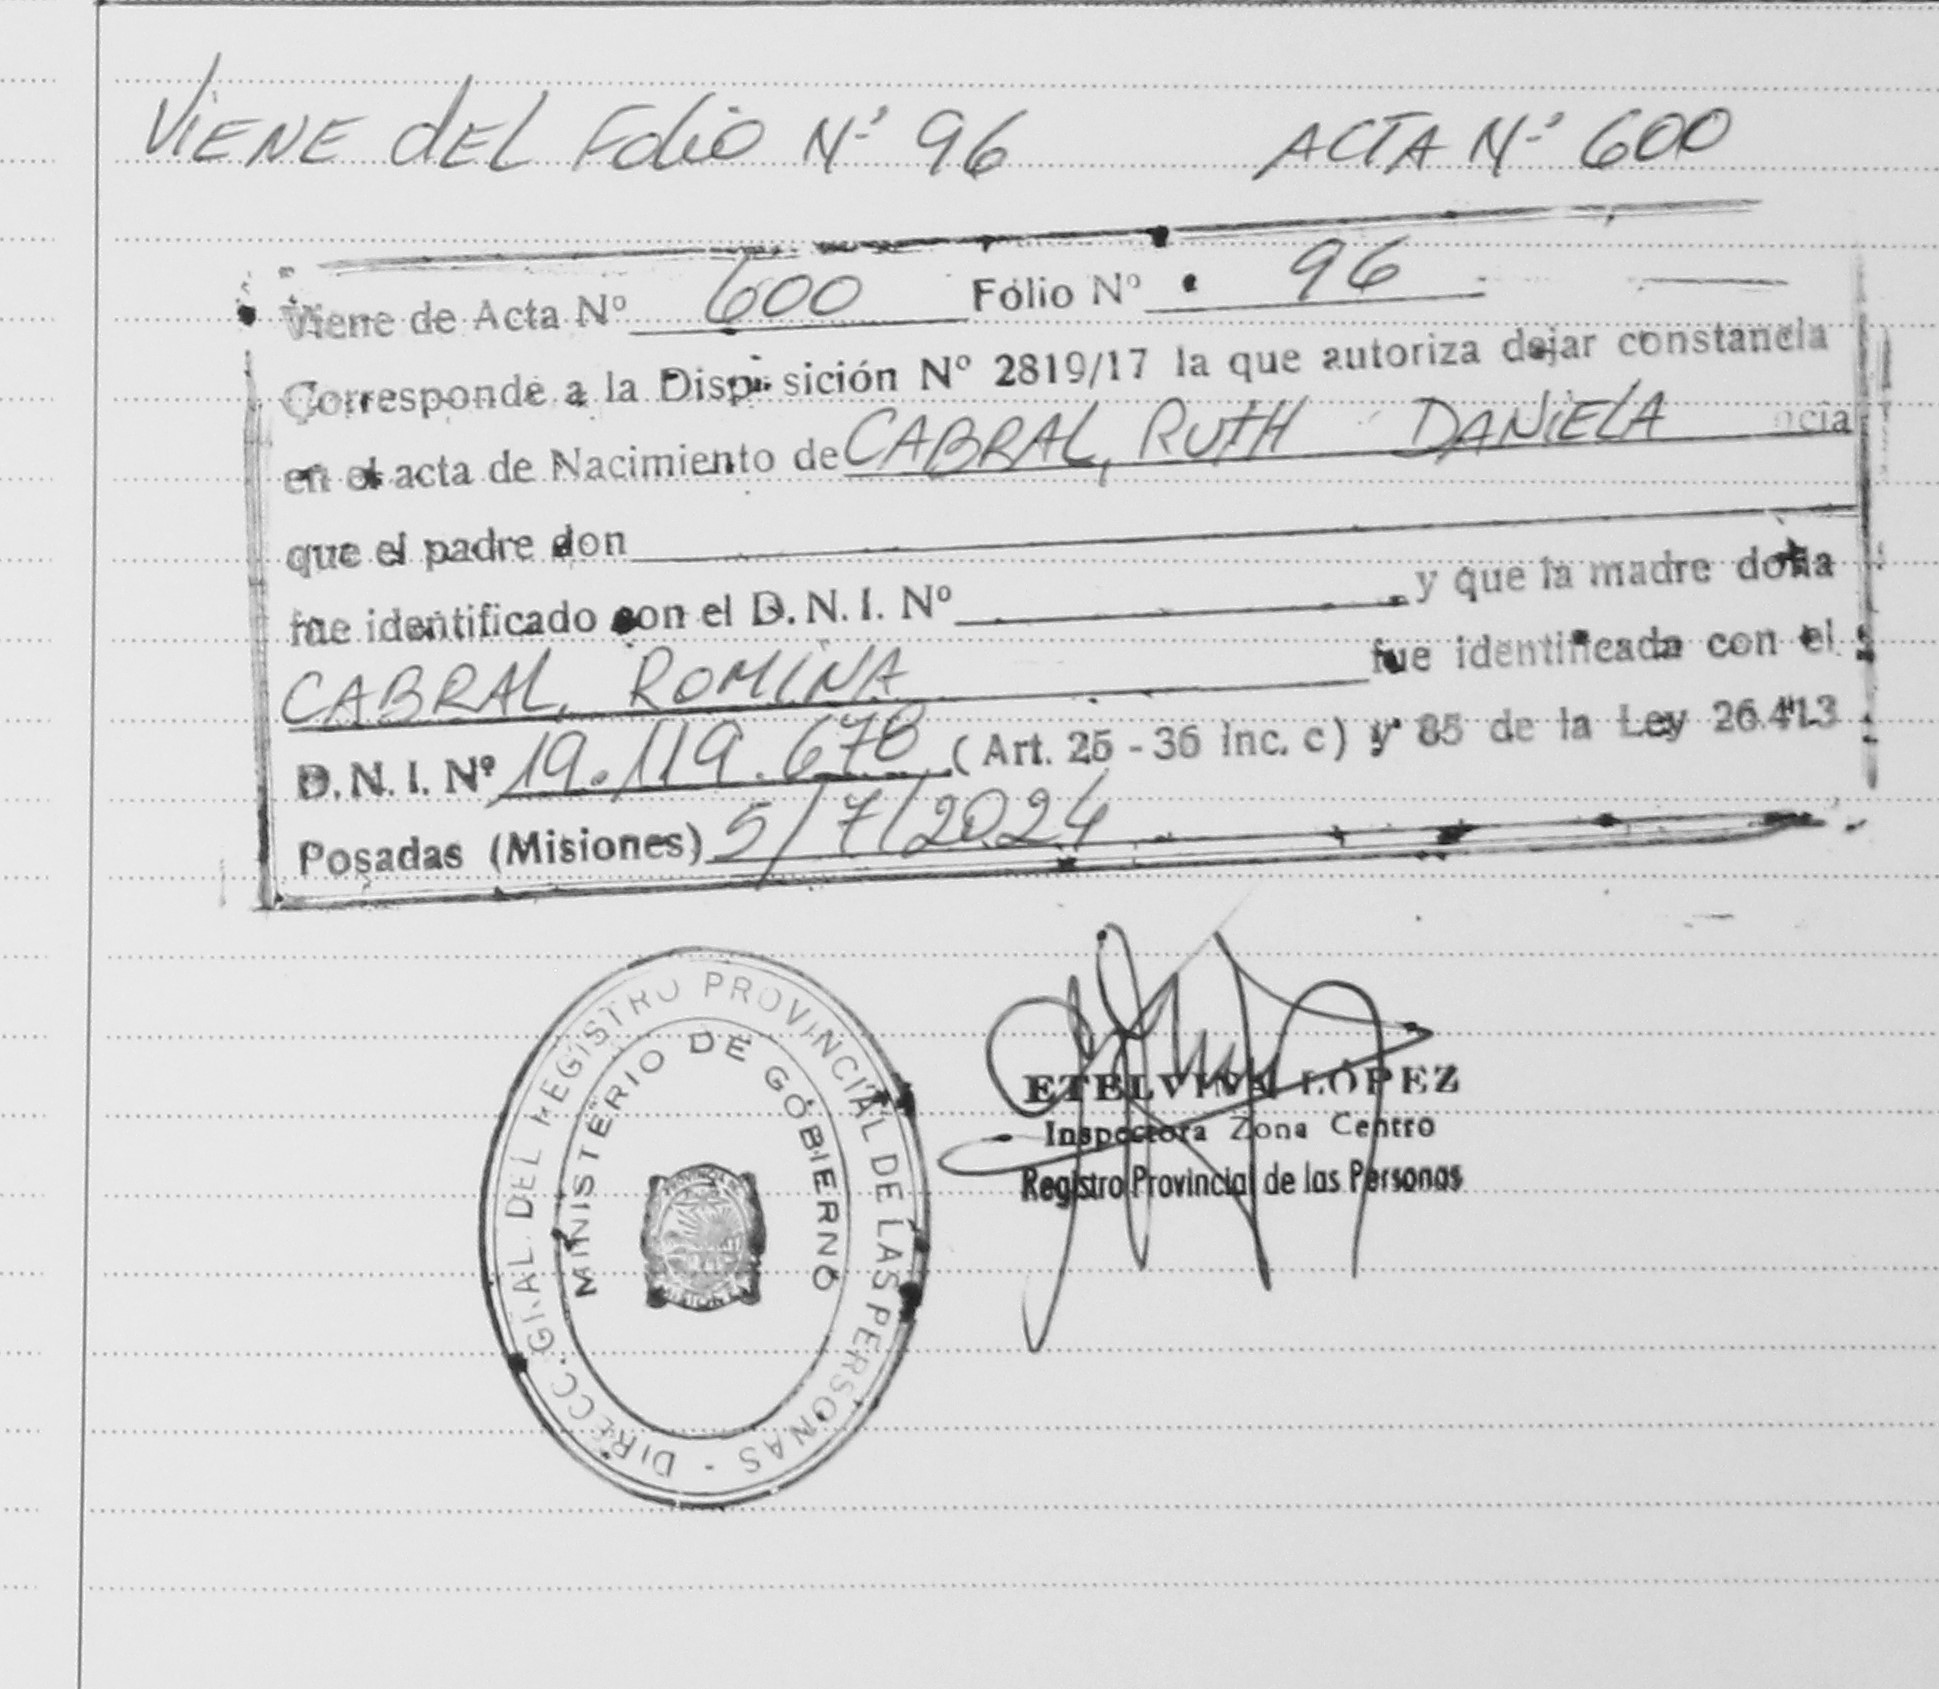 VIENE DEL FOLIO Nº 96 ACTA Nº 600
Viene de Acta Nº 600 Fólio Nº 96
Corresponde a la Disposición Nº 2819/17 la que autoriza dejar constancia
en el acta de Nacimiento de CABRAL, RUTH DANIELA ncia
que el padre don
fue identificado con el D. N. I. Nº y que la madre doña
CABRAL, ROMINA fue identificada con el
D. N. I. Nº 19.119.678 ( Art. 25 - 36 inc. c) y 85 de la Ley 26.413
Posadas (Misiones) 5/7/2024
DIRECC. GRAL. DEL REGISTRO PROVINCIAL DE LAS PERSONAS -
MINISTERIO DE GOBIERNO
ETELVINA LÓPEZ
Inspectora Zona Centro
Registro Provincial de las Personas